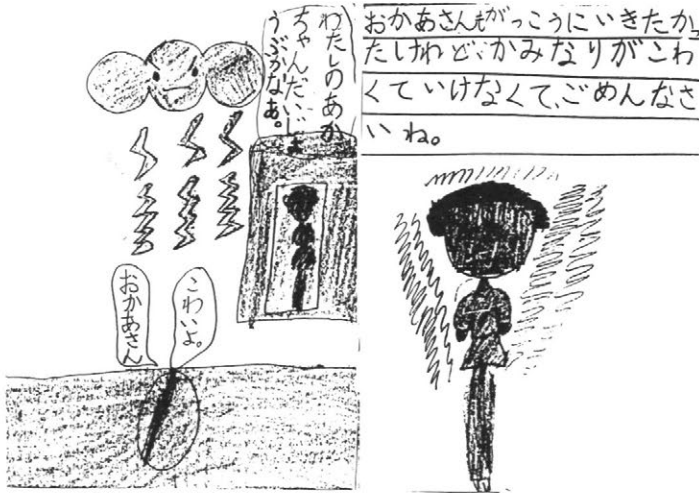 わたしのあか
ちゃんだいじょ
うぶかなあ。
こわいよ。
おかあさん
おかあさんもがっこうにいきたかっ
たけれど、かみなりがこわ
くていけなくて、ごめんなさ
いね。